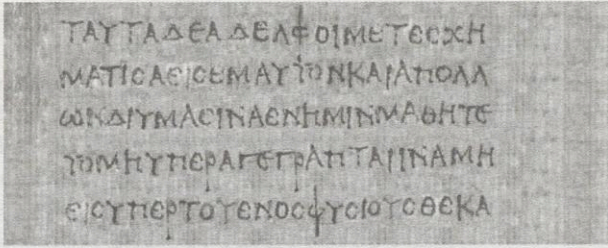 ΤΑΥΤΑΔΕΑΔΕΛΦΟΙΜΕΤΕϹΧΗ
ΜΑΤΙϹΑΕΙϹΕΜΑΥΤΟΝΚΑΙΑΠΟΛΛ
ωΝΔΙΥΜΑϹΙΝΑΕΝΗΜΙΝΜΑΘΗΤΕ
ΤΟΜΗΥΠΕΡΑΓΕΓΡΑΠΤΑΙΙΝΑΜΗ
ΕΙϹΥΠΕΡΤΟΥΕΝΟϹΦΥϹΙΟΥϹΘΕΚΑ